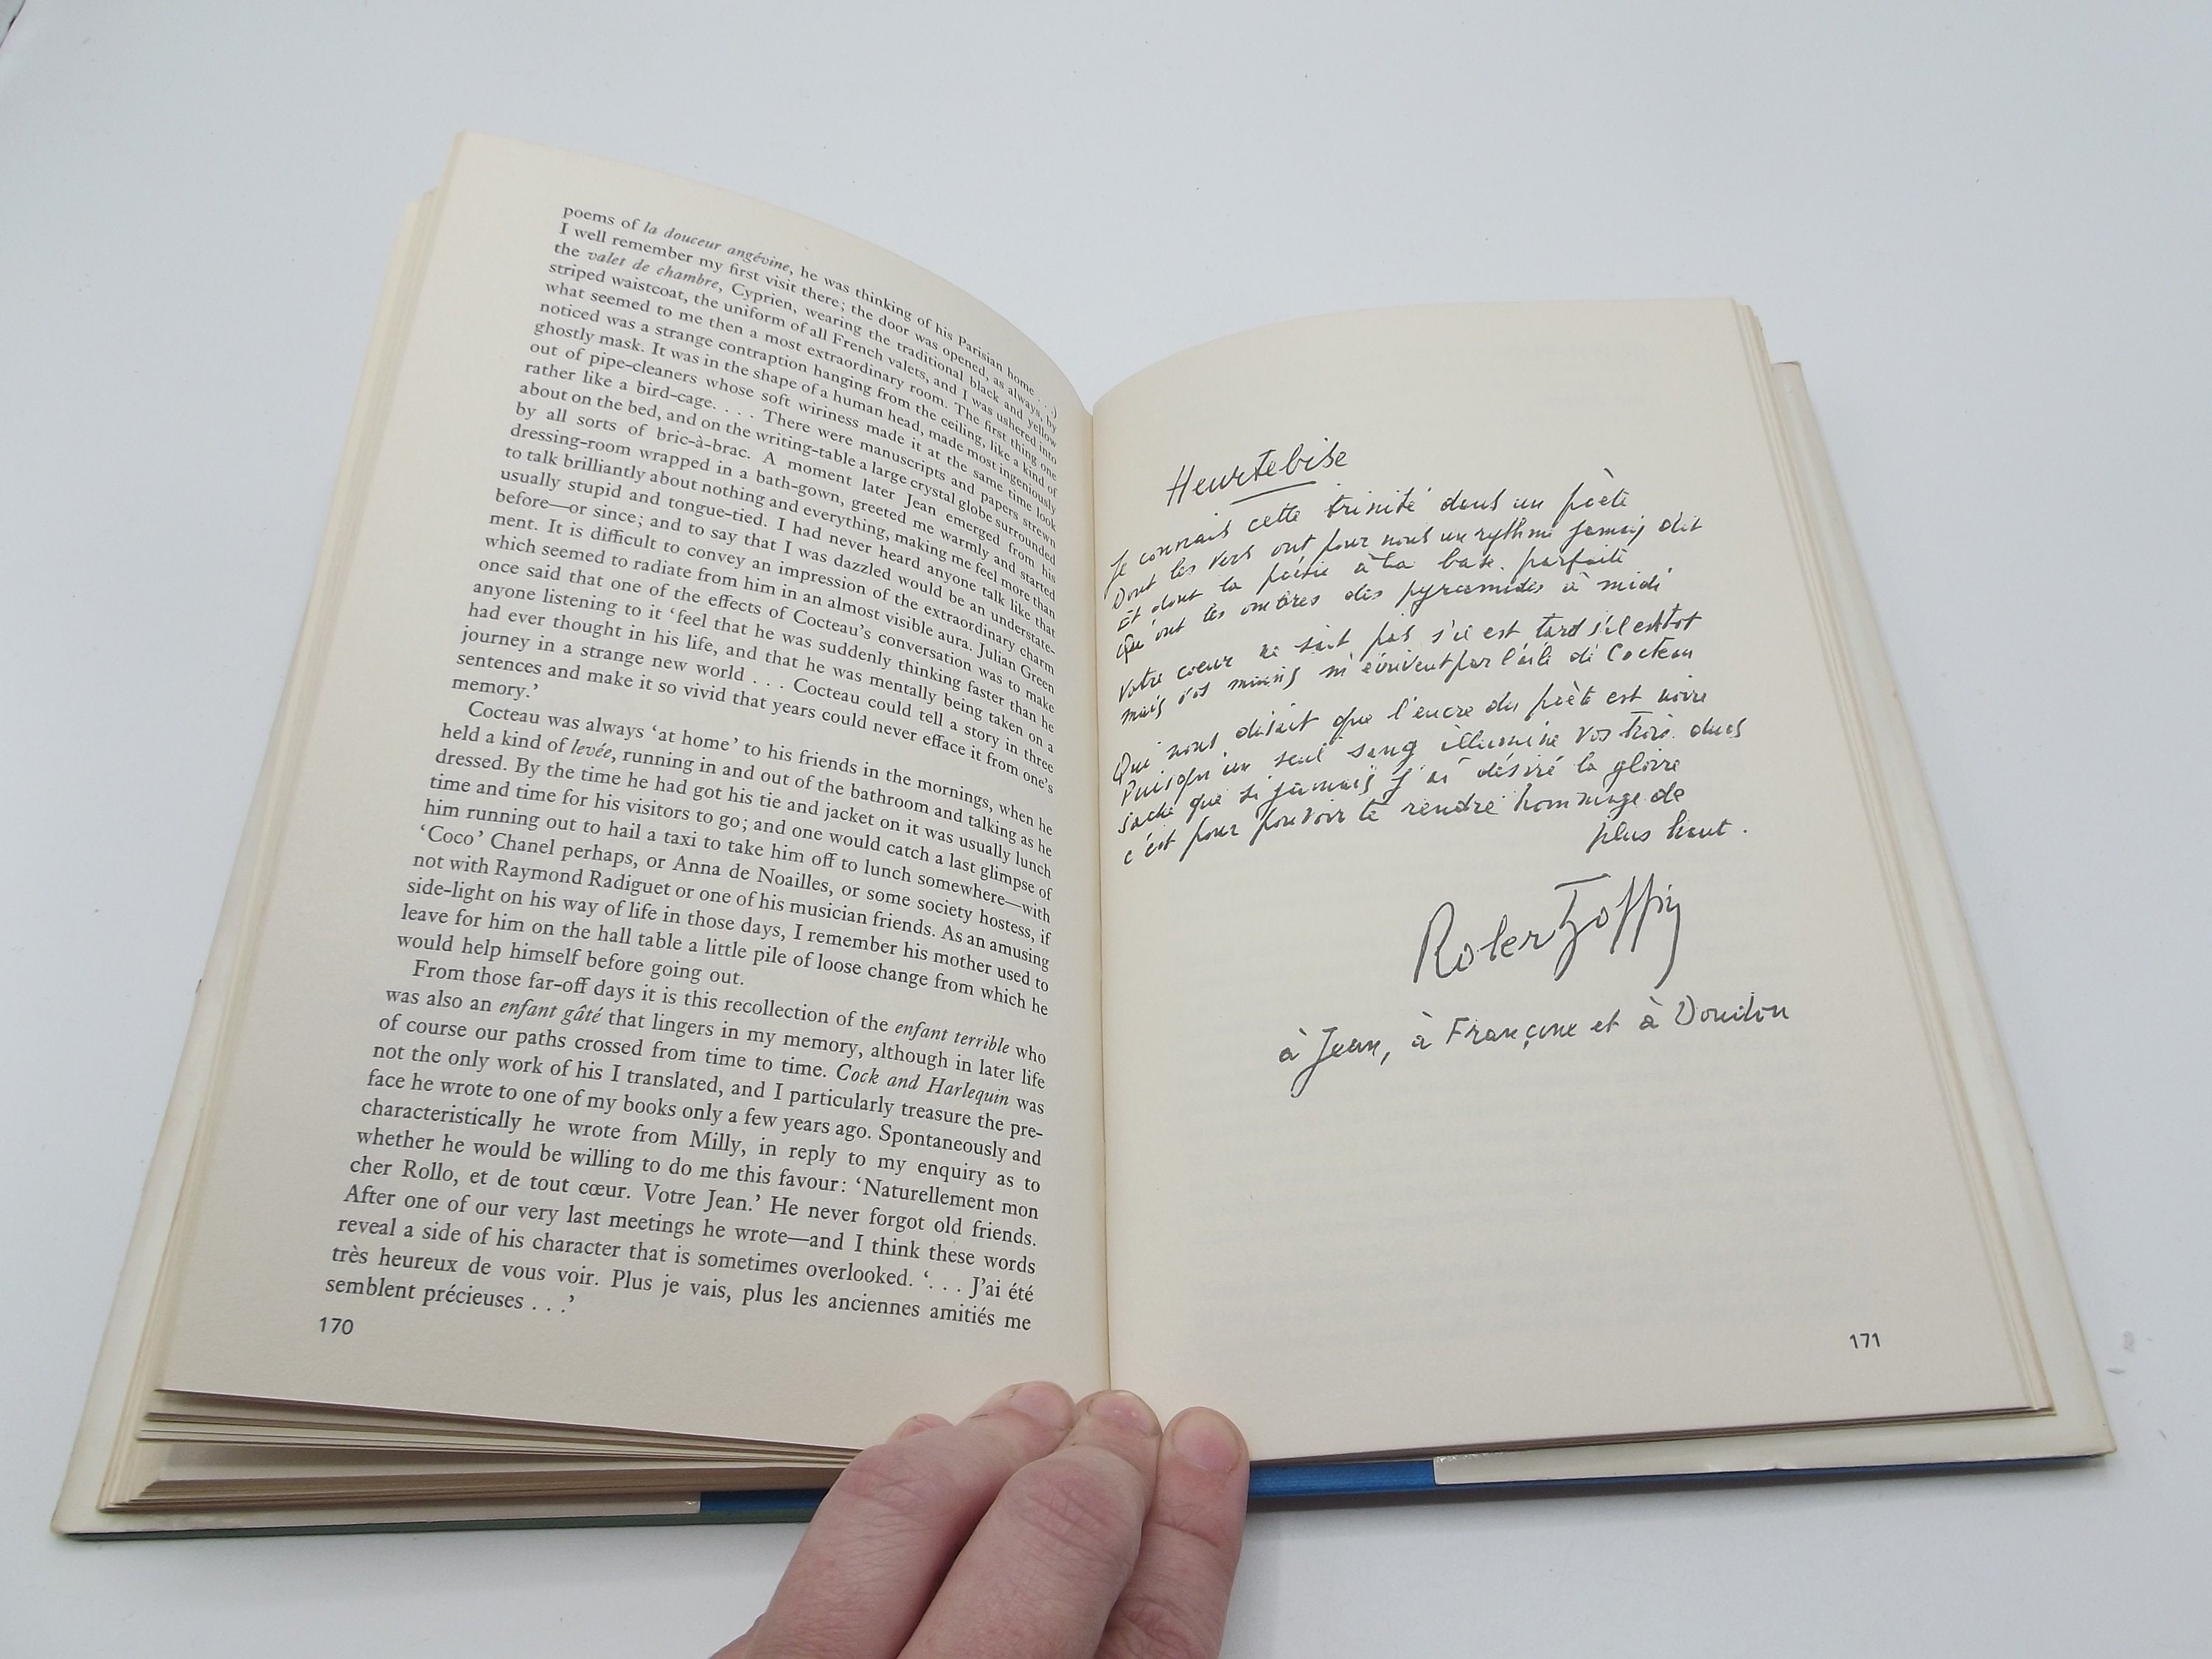 poems of la douceur angévine, he was thinking of his Parisian home . . .)
I well remember my first visit there; the door was opened, as always, by
the valet de chambre, Cyprien, wearing the traditional black and yellow
striped waistcoat, the uniform of all French valets, and I was ushered into
what seemed to me then a most extraordinary room. The first thing one
noticed was a strange contraption hanging from the ceiling, like a kind of
ghostly mask. It was in the shape of a human head, made most ingeniously
out of pipe-cleaners whose soft wiriness made it at the same time look
rather like a bird-cage. . . . There were manuscripts and papers strewn
about on the bed, and on the writing-table a large crystal globe surrounded
by all sorts of bric-à-brac. A moment later Jean emerged from his
dressing-room wrapped in a bath-gown, greeted me warmly and started
to talk brilliantly about nothing and everything, making me feel more than
usually stupid and tongue-tied. I had never heard anyone talk like that
before—or since; and to say that I was dazzled would be an understate-
ment. It is difficult to convey an impression of the extraordinary charm
which seemed to radiate from him in an almost visible aura. Julian Green
once said that one of the effects of Cocteau's conversation was to make
anyone listening to it 'feel that he was suddenly thinking faster than he
had ever thought in his life, and that he was mentally being taken on a
journey in a strange new world . . . Cocteau could tell a story in three
sentences and make it so vivid that years could never efface it from one's
memory.'
Cocteau was always 'at home' to his friends in the mornings, when he
held a kind of levée, running in and out of the bathroom and talking as he
dressed. By the time he had got his tie and jacket on it was usually lunch
time and time for his visitors to go; and one would catch a last glimpse of
him running out to hail a taxi to take him off to lunch somewhere—with
'Coco' Chanel perhaps, or Anna de Noailles, or some society hostess, if
not with Raymond Radiguet or one of his musician friends. As an amusing
side-light on his way of life in those days, I remember his mother used to
leave for him on the hall table a little pile of loose change from which he
would help himself before going out.
From those far-off days it is this recollection of the enfant terrible who
was also an enfant gâté that lingers in my memory, although in later life
of course our paths crossed from time to time. Cock and Harlequin was
not the only work of his I translated, and I particularly treasure the pre-
face he wrote to one of my books only a few years ago. Spontaneously and
characteristically he wrote from Milly, in reply to my enquiry as to
whether he would be willing to do me this favour: 'Naturellement mon
cher Rollo, et de tout cœur. Votre Jean.' He never forgot old friends.
After one of our very last meetings he wrote—and I think these words
reveal a side of his character that is sometimes overlooked. '. . . J'ai été
très heureux de vous voir. Plus je vais, plus les anciennes amitiés me
semblent précieuses . . .'
170
Heurtebise
Je connais cette trinité dans un poète
Dont les vers ont pour nous un rythme jamais dit
Et dont la poésie à la base parfaite
Qu'ont les ombres des pyramides à midi
Votre cœur ne sait pas s'il est tard s'il est tot
mais vos mains m'écrivent par l'aile de Cocteau
Qui nous disait que l'encre du poète est noire
Puisqu'un seul sang illumine vos trois
Sache que si jamais j'ai désiré la gloire
c'est pour pouvoir te rendre hommage de
plus haut.
Robert Goffin
à Jean, à Francine et à Doudou
171